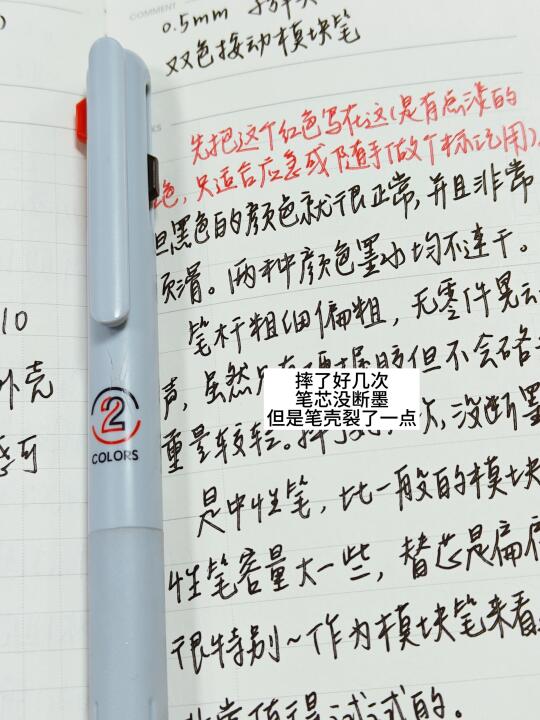 COMMENT
0.5mm
双色按动模块笔
先把这个红色写在这(是有点淡的
色,只适合应急或随手做个标记用)
但黑色的颜色就很正常,并且非常
顺滑。两种颜色墨水均不速干。
笔杆粗细偏粗,无零件晃动
声,虽然
但不会硌
摔了好几次
笔芯没断墨
但是笔壳裂了一点
重量较轻。
次,没断墨
是中性笔,比一般的模块
性笔容量大一些,替芯是扁
很特别~作为模块笔来看
非常值得试试的。
2
COLORS
10
外壳
感可